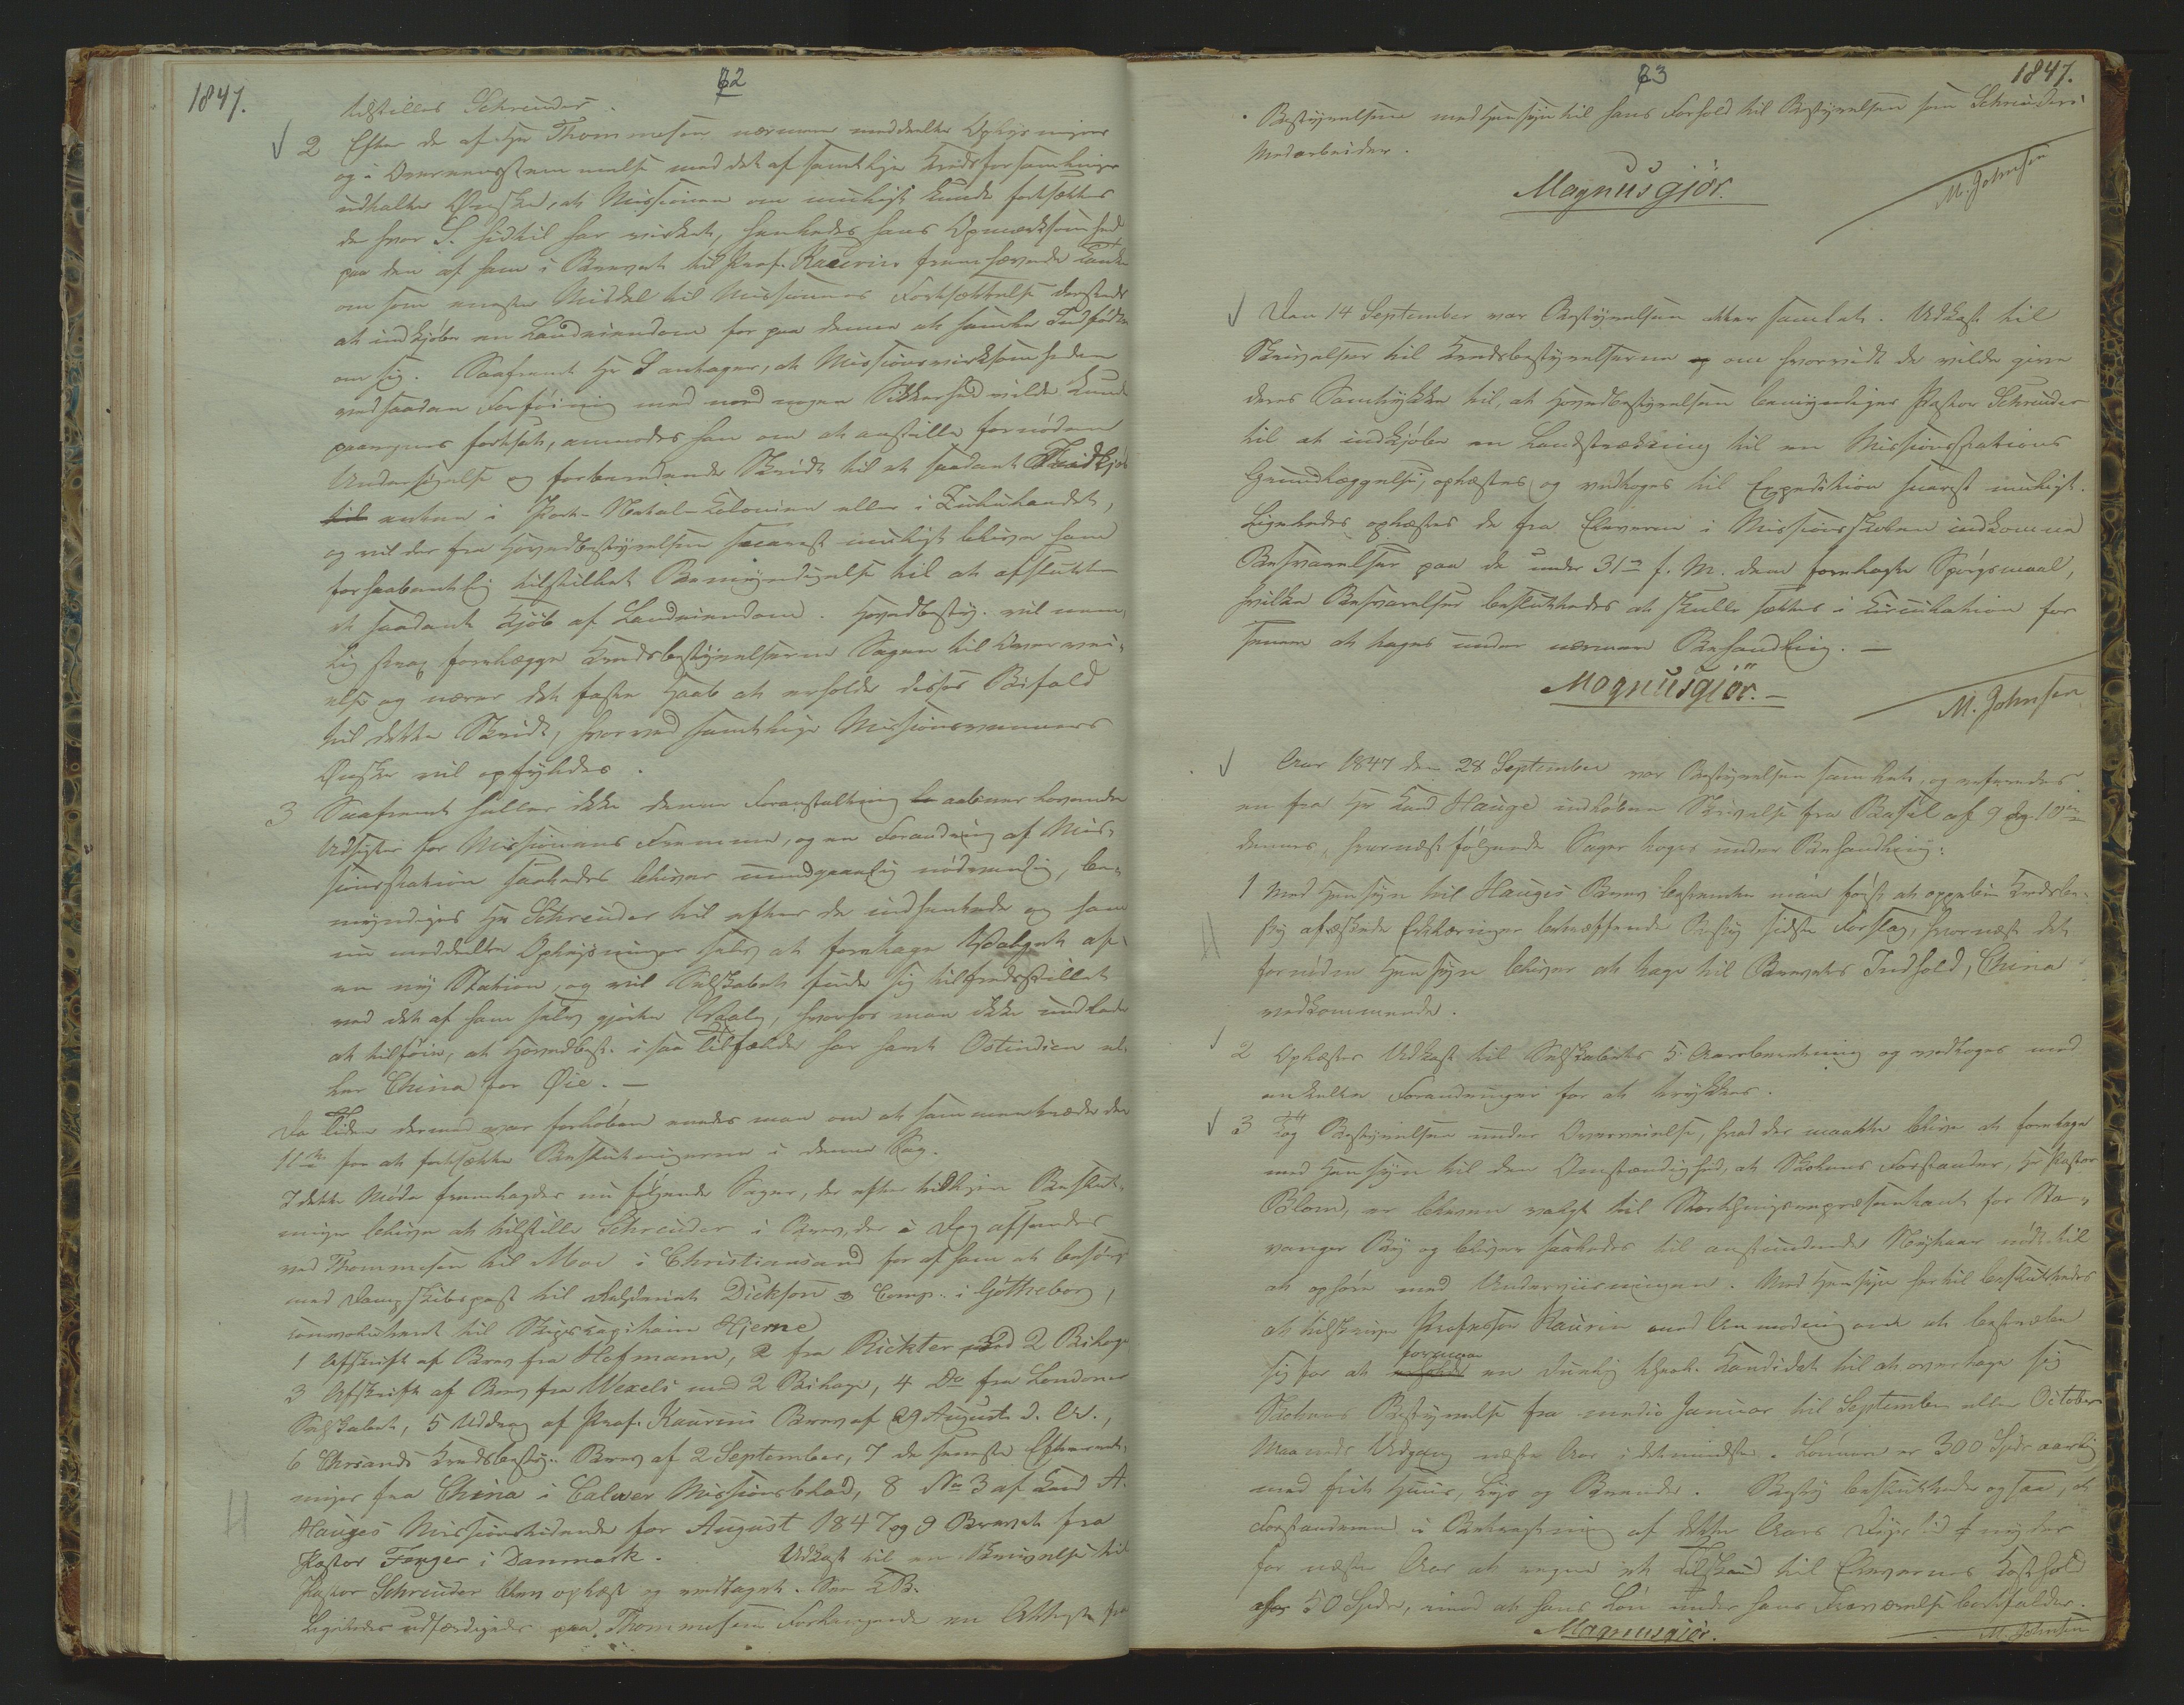 1847.
62
tilstilles Schreuder.
2 Efter de af Hr Thommesen nærmere meddeelte Oplysninger
og i Overeensstemmelse med det af samtlige Kredsforsamlinger
udtalte Ønske, at Missionen om muligt kunde fortsættes
der hvor S. hidtil har virket, henledes hans Opmærksomhed
paa den af ham i Brevet til Prof. Kaurin fremhævede Tanke
om som eneste Middel til Missionens Fortsættelse dersteds
at indkjøbe en Landeiendom for paa denne at samle Indfødte
om sig. Saafremt Hr S antager, at Missionsvirksomheden
ved saadan Forføining med nogen Sikkerhed vilde kunde
paaregnes fortsat, anmodes han om at anstille fornødne
Undersøgelse og forberedende Skridt til et saadant Indkjøb
til enten i Port-Natal-Colonien eller i Zululandet,
og vil der fra Hovedbestyrelsen snarest muligt blive ham
forhaabentlig tilstillet Bemyndigelse til at afslutte
et saadant Kjøb af Landeiendom. Hovedbesty. vil nem-
lig strax forelægge Kredsbestyrelserne Sagen til Overvei-
else og nærer det faste Haab at erholde disses Bifald
til dette Skridt, hvorved samtlige Missionsvenners
Ønske vil opfyldes.
3 Saafremt heller ikke denne Foranstaltning aabner lovende
Udsigter for Missionens Fremme, og en Forandring af Mis-
sionsstation saaledes bliver uundgaaelig nødvendig, be-
myndiges Hr Schreuder til efter de indhentede og ham
nu meddeelte Oplysninger selv at foretage Udvalget af
en ny Station, og vil Selskabet finde sig tilfredsstillet
ved det af ham selv gjorte Valg, hvorfor man ikke undlader
at tilføie, at Hovedbest. i saa Tilfælde har havt Ostindien el-
ler China for Øie. —
Da Tiden dermed var forløben enedes man om at sammentræde den
11te for at fortsætte Beslutningerne i denne Sag.
I dette Møde fremlagdes nu følgende Sager, der efter tidligere Beslut-
ninger bliver at tilstille Schreuder i Brev, der i Dag afsendes
ved Thommesen til Moe i Christiansand for af ham at besørges
med Dampskibspost til Dickson & Comp. i Götheborg,
til Skibskapitain Hjerne
1 Afskrift af Brev fra Hofmann, 2 fra Richter med 2 Bilage
3 Afskrift af Brev fra Wexels med 2 Bilage, 4 Do fra Londoner
Selskabet, 5 Uddrag af Prof. Kaurins Brev af 29 August d. A.,
6 Chrsands Kredsbesty. Brev af 2 September, 7 de seneste Efterret-
ninger fra China i Calwer Missionsblad, 8 No 3 af Cand A.
Hauges Missionstidende for August 1847 og 9 Brevet fra
Pastor Fenger i Danmark. Udkast til en Skrivelse til
Pastor Schreuder blev oplæst og vedtaget. See KB.
Ligeledes udfærdigedes paa Thommesens Forlangende en Attest fra
63
1847.
Bestyrelsen med Hensyn til hans Forhold til Bestyrelsen som Schreuders
Medarbeider.
Magnus gjör.
M. Johnsen
Den 14 September var Bestyrelsen atter samlet. Udkast til
Skrivelser til Kredsbestyrelserne om hvorvidt de vilde give
deres Samtykke til, at Hovedbestyrelsen bemyndiger Pastor Schreuder
til at indkjøbe en Landstrækning til en Missionsstations
Grundlæggelse, oplæstes og vedtoges til Expedition snarest muligt.
Ligeledes oplæstes de fra Eleverne i Missionsskolen indkomne
Besvarelser paa de under 31te f. M. dem forelagte Spørgsmaal,
hvilke Besvarelser besluttedes at skulle sættes i Circulation for
senere at tages under nærmere Behandling. —
Magnus gjör. —
M. Johnsen
Aar 1847 den 28 September var Bestyrelsen samlet, og refereredes
en fra Hr Cand Hauge indløben Skrivelse fra Basel af 9 og 10de
dennes, hvornæst følgende Sager toges under Behandling:
1 Med Hensyn til Hauges Brev bestemte man først at oppebie Kredsbe-
sty. afæskede Erklæringer betræffende Besty. sidste Forslag, hvornæst det
fornødne Hensyn bliver at tage til Brevets Indhold, China
vedkommende.
2 Oplæstes Udkast til Selskabets 5 Aarsberetning og vedtoges med
enkelte Forandringer for at trykkes.
3 Tog Bestyrelsen under Overveielse, hvad der maatte blive at foretage
med Hensyn til den Omstændighed, at Skolens Forstander, Hr Pastor
Blom, er bleven valgt til Storthingsrepræsentant for Sta-
vanger By og bliver saaledes til anstundende Nytaar nødt til
at ophøre med Underviisningen. Med Hensyn hertil besluttedes
at tilskrive Professor Kaurin med Anmodning om at bestræbe
sig for at formaae en duelig theol. Candidat til at overtage sig
Skolens Bestyrelse fra medio Januar til September eller October
Maaneds Udgang næste Aar i det mindste. Lønnen er 300 Spdr aarlig
med frit Huus, Lys og Brænde. Besty. besluttede ogsaa, at
Forstanderen i Betragtning af dette Aars Dyrtid nyder
for næste Aar at regne et Tilskud til Elevernes Kosthold
af 50 Spdr, imod at hans Løn under hans Fraværelse bortfalder.
Magnus gjör.
M. Johnsen